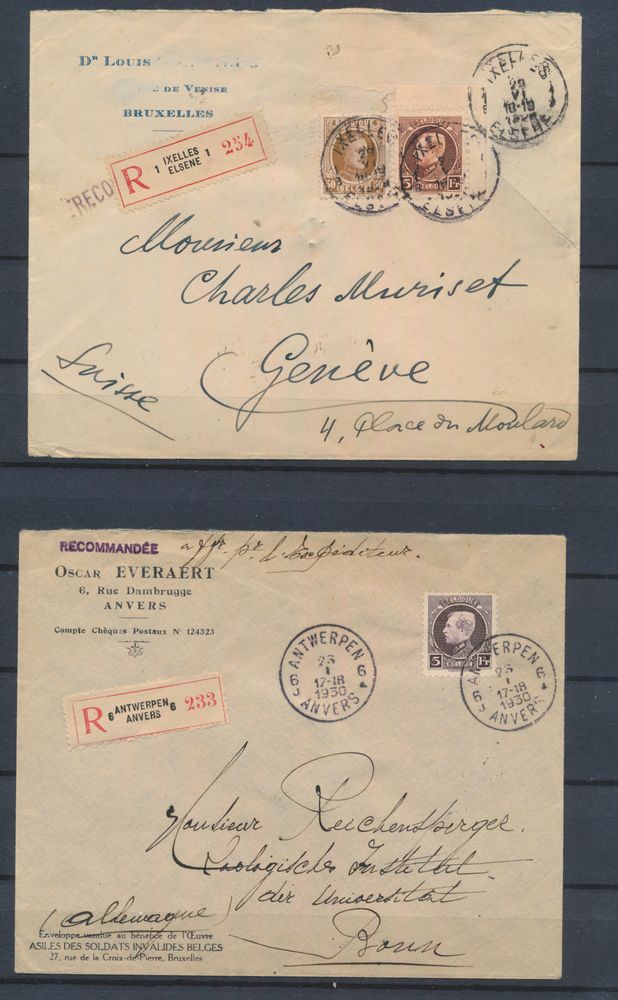 Dr Louis
DE VENISE
BRUXELLES
IXELLES
29
VI
ELSENE
R
1 IXELLES 1
ELSENE
254
RECO
BELGIQUE
5 Fr
Monsieur
Charles Muriset
Genève
Suisse
4, Place du Moulard
RECOMMANDÉE
aff. pr l'Expéditeur.
OSCAR EVERAERT
6, Rue Dambrugge
ANVERS
Compte Chèques Postaux N° 124323
BELGIQUE
5 Fr
BELGIË
6 ANTWERPEN 6
23
I
17-18
1930
ANVERS
ANTWERPEN 6
23
I
17-18
1930
ANVERS
R
6 ANTWERPEN 6
ANVERS
233
Monsieur Reichensperger.
Zoologisches Institut
der Universität
Bonn
(Allemagne)
Enveloppe vendue au bénéfice de l'Œuvre
ASILES DES SOLDATS INVALIDES BELGES
27, rue de la Croix-de-Pierre, Bruxelles